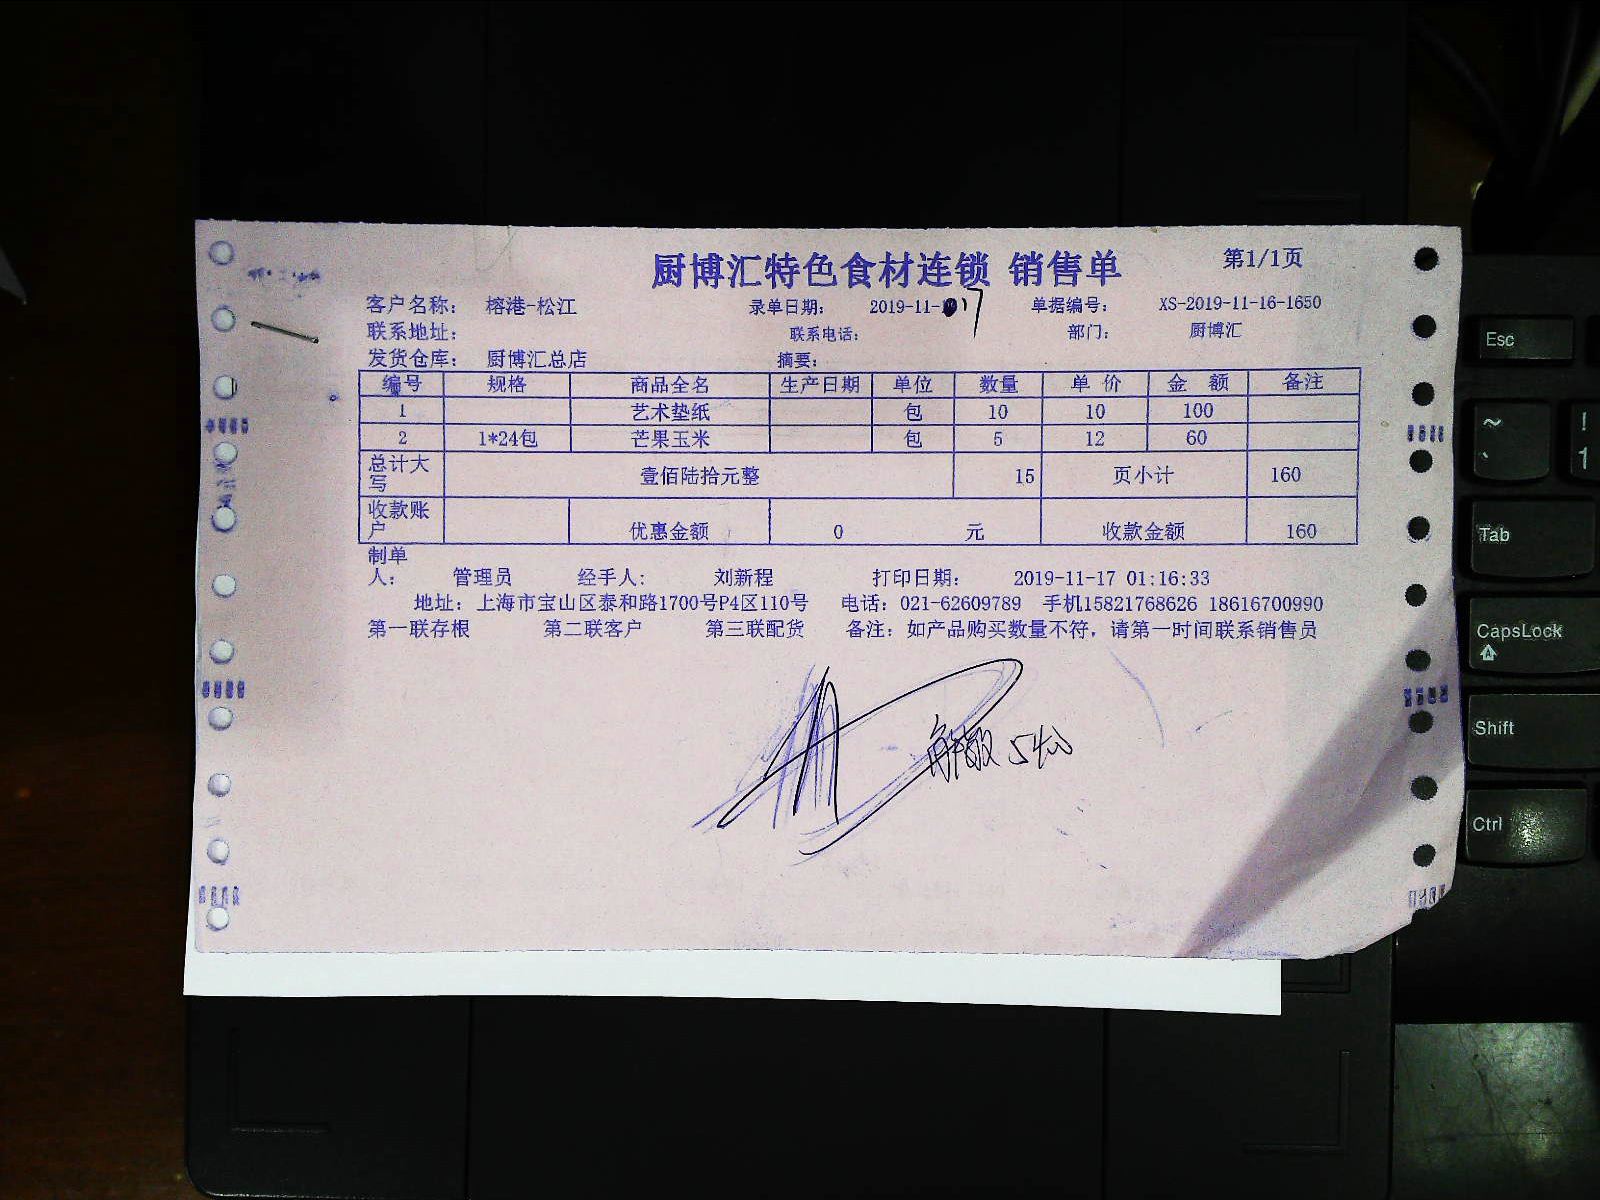 厨博汇特色食材连锁 销售单 第1/1页
客户名称： 榕港-松江 录单日期： 2019-11-17 单据编号： XS-2019-11-16-1650
联系地址： 联系电话： 部门： 厨博汇
发货仓库： 厨博汇总店 摘要：
编号 规格 商品全名 生产日期 单位 数量 单 价 金 额 备注
1 艺术垫纸 包 10 10 100
2 1*24包 芒果玉米 包 5 12 60
总计大写 壹佰陆拾元整 15 页小计 160
收款账户 优惠金额 0 元 收款金额 160
制单人： 管理员 经手人： 刘新程 打印日期： 2019-11-17 01:16:33
地址：上海市宝山区泰和路1700号P4区110号 电话：021-62609789 手机15821768626 18616700990
第一联存根 第二联客户 第三联配货 备注：如产品购买数量不符，请第一时间联系销售员
Esc
~
`
!
1
Tab
CapsLock
A
Shift
Ctrl